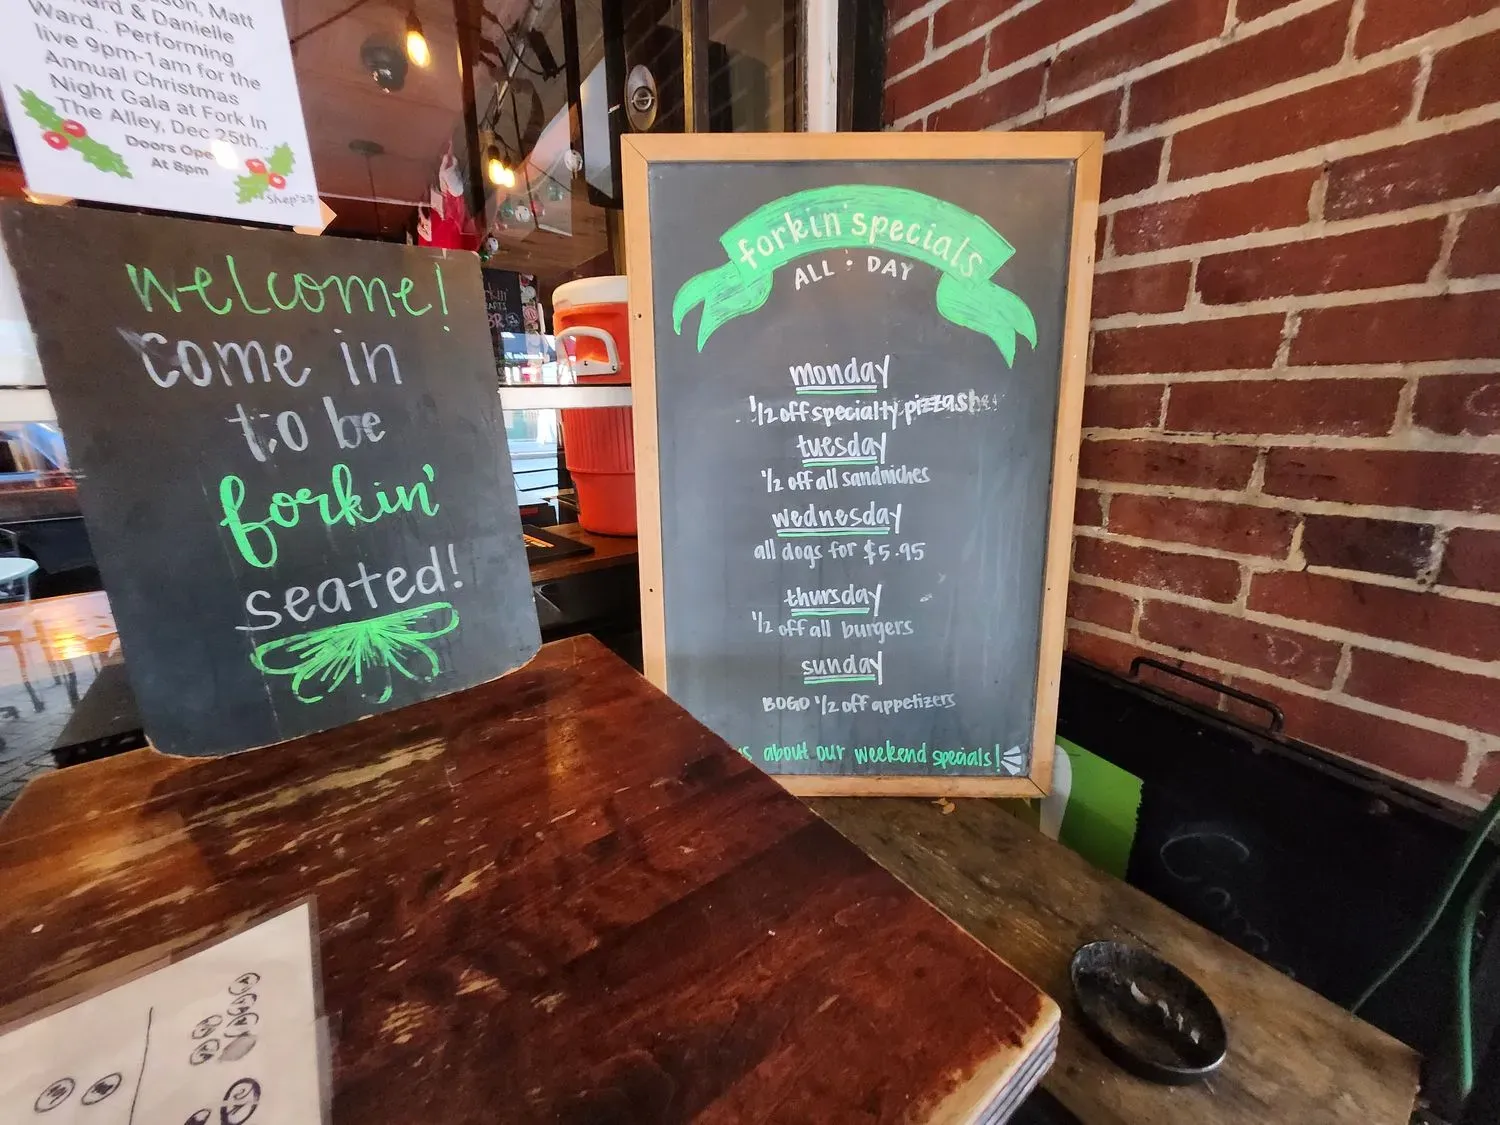 son, Matt
ard & Danielle
Ward.. Performing
live 9pm-1am for the
Annual Christmas
Night Gala at Fork In
The Alley, Dec 25th..
Doors Ope
At 8pm
Shep'23
welcome!
come in
to be
forkin'
seated!
forkin' specials
ALL · DAY
monday
1/2 off specialty pizzas
tuesday
1/2 off all sandwiches
wednesday
all dogs for $5.95
thursday
1/2 off all burgers
sunday
BOGO 1/2 off appetizers
us about our weekend specials!